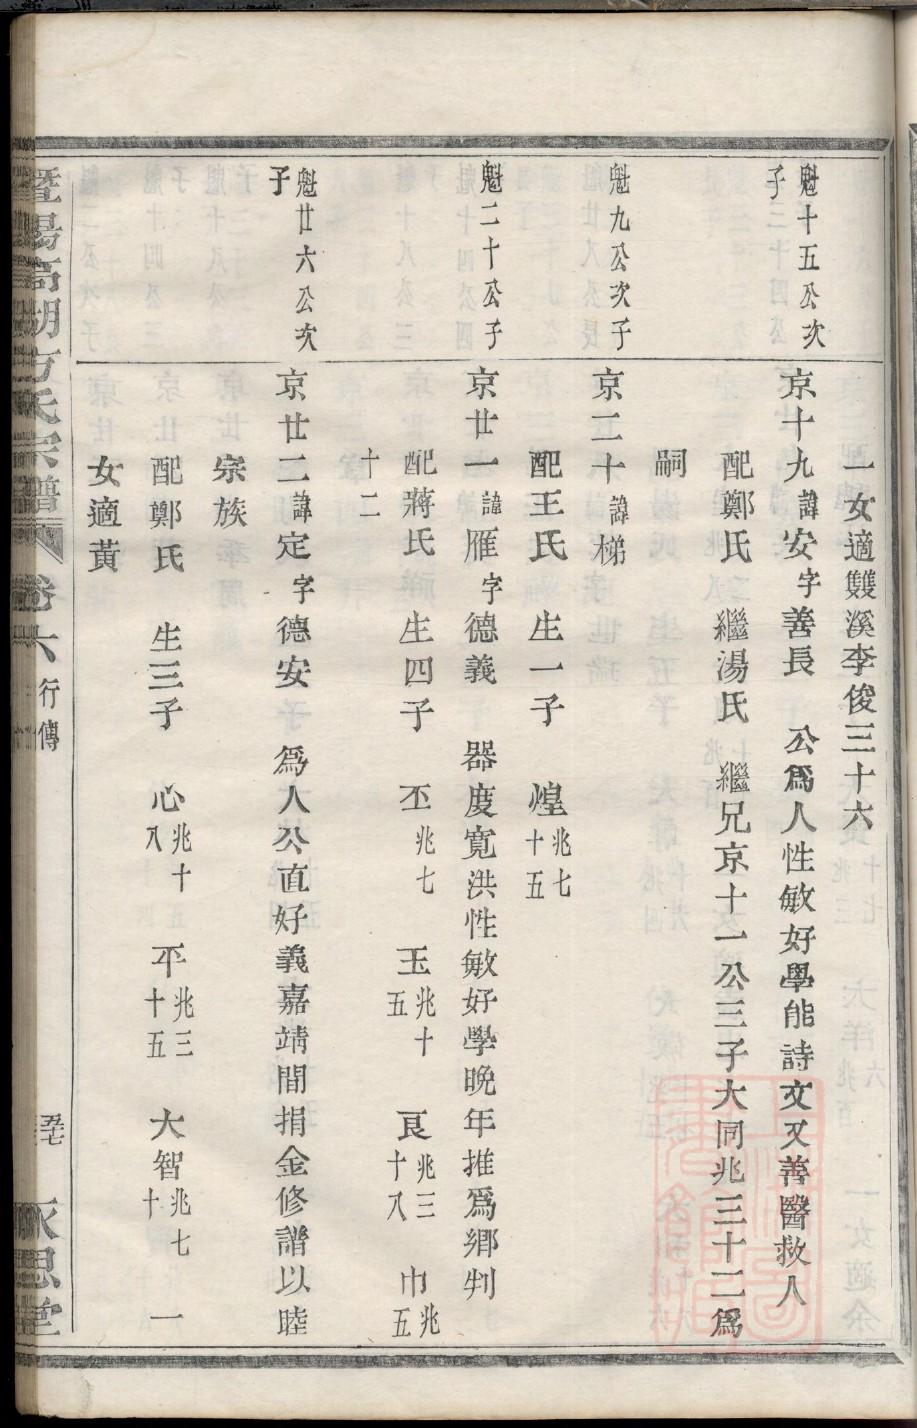 一女適雙溪李俊三十六
魁十五公次子
京十九諱安字善長 公爲人性敏好學能詩文又善醫救人
配鄭氏 繼湯氏 繼兄京十一公三子大同兆三十二爲
嗣
魁九公次子
京二十諱梯
配王氏 生一子 煌兆七十五
魁二十公子
京廿一諱雁字德義 器度寬洪性敏好學晚年推爲鄉判
配蔣氏 生四子 丕兆七 玉兆十五 良兆三十八 巾兆五
十二
魁廿六公次子
京廿二諱定字德安 爲人公直好義嘉靖間捐金修譜以睦
宗族
配鄭氏 生三子 心兆十八 平兆三十五 大智兆七十 一
女適黃
暨陽高湖方氏宗譜 卷六 行傳